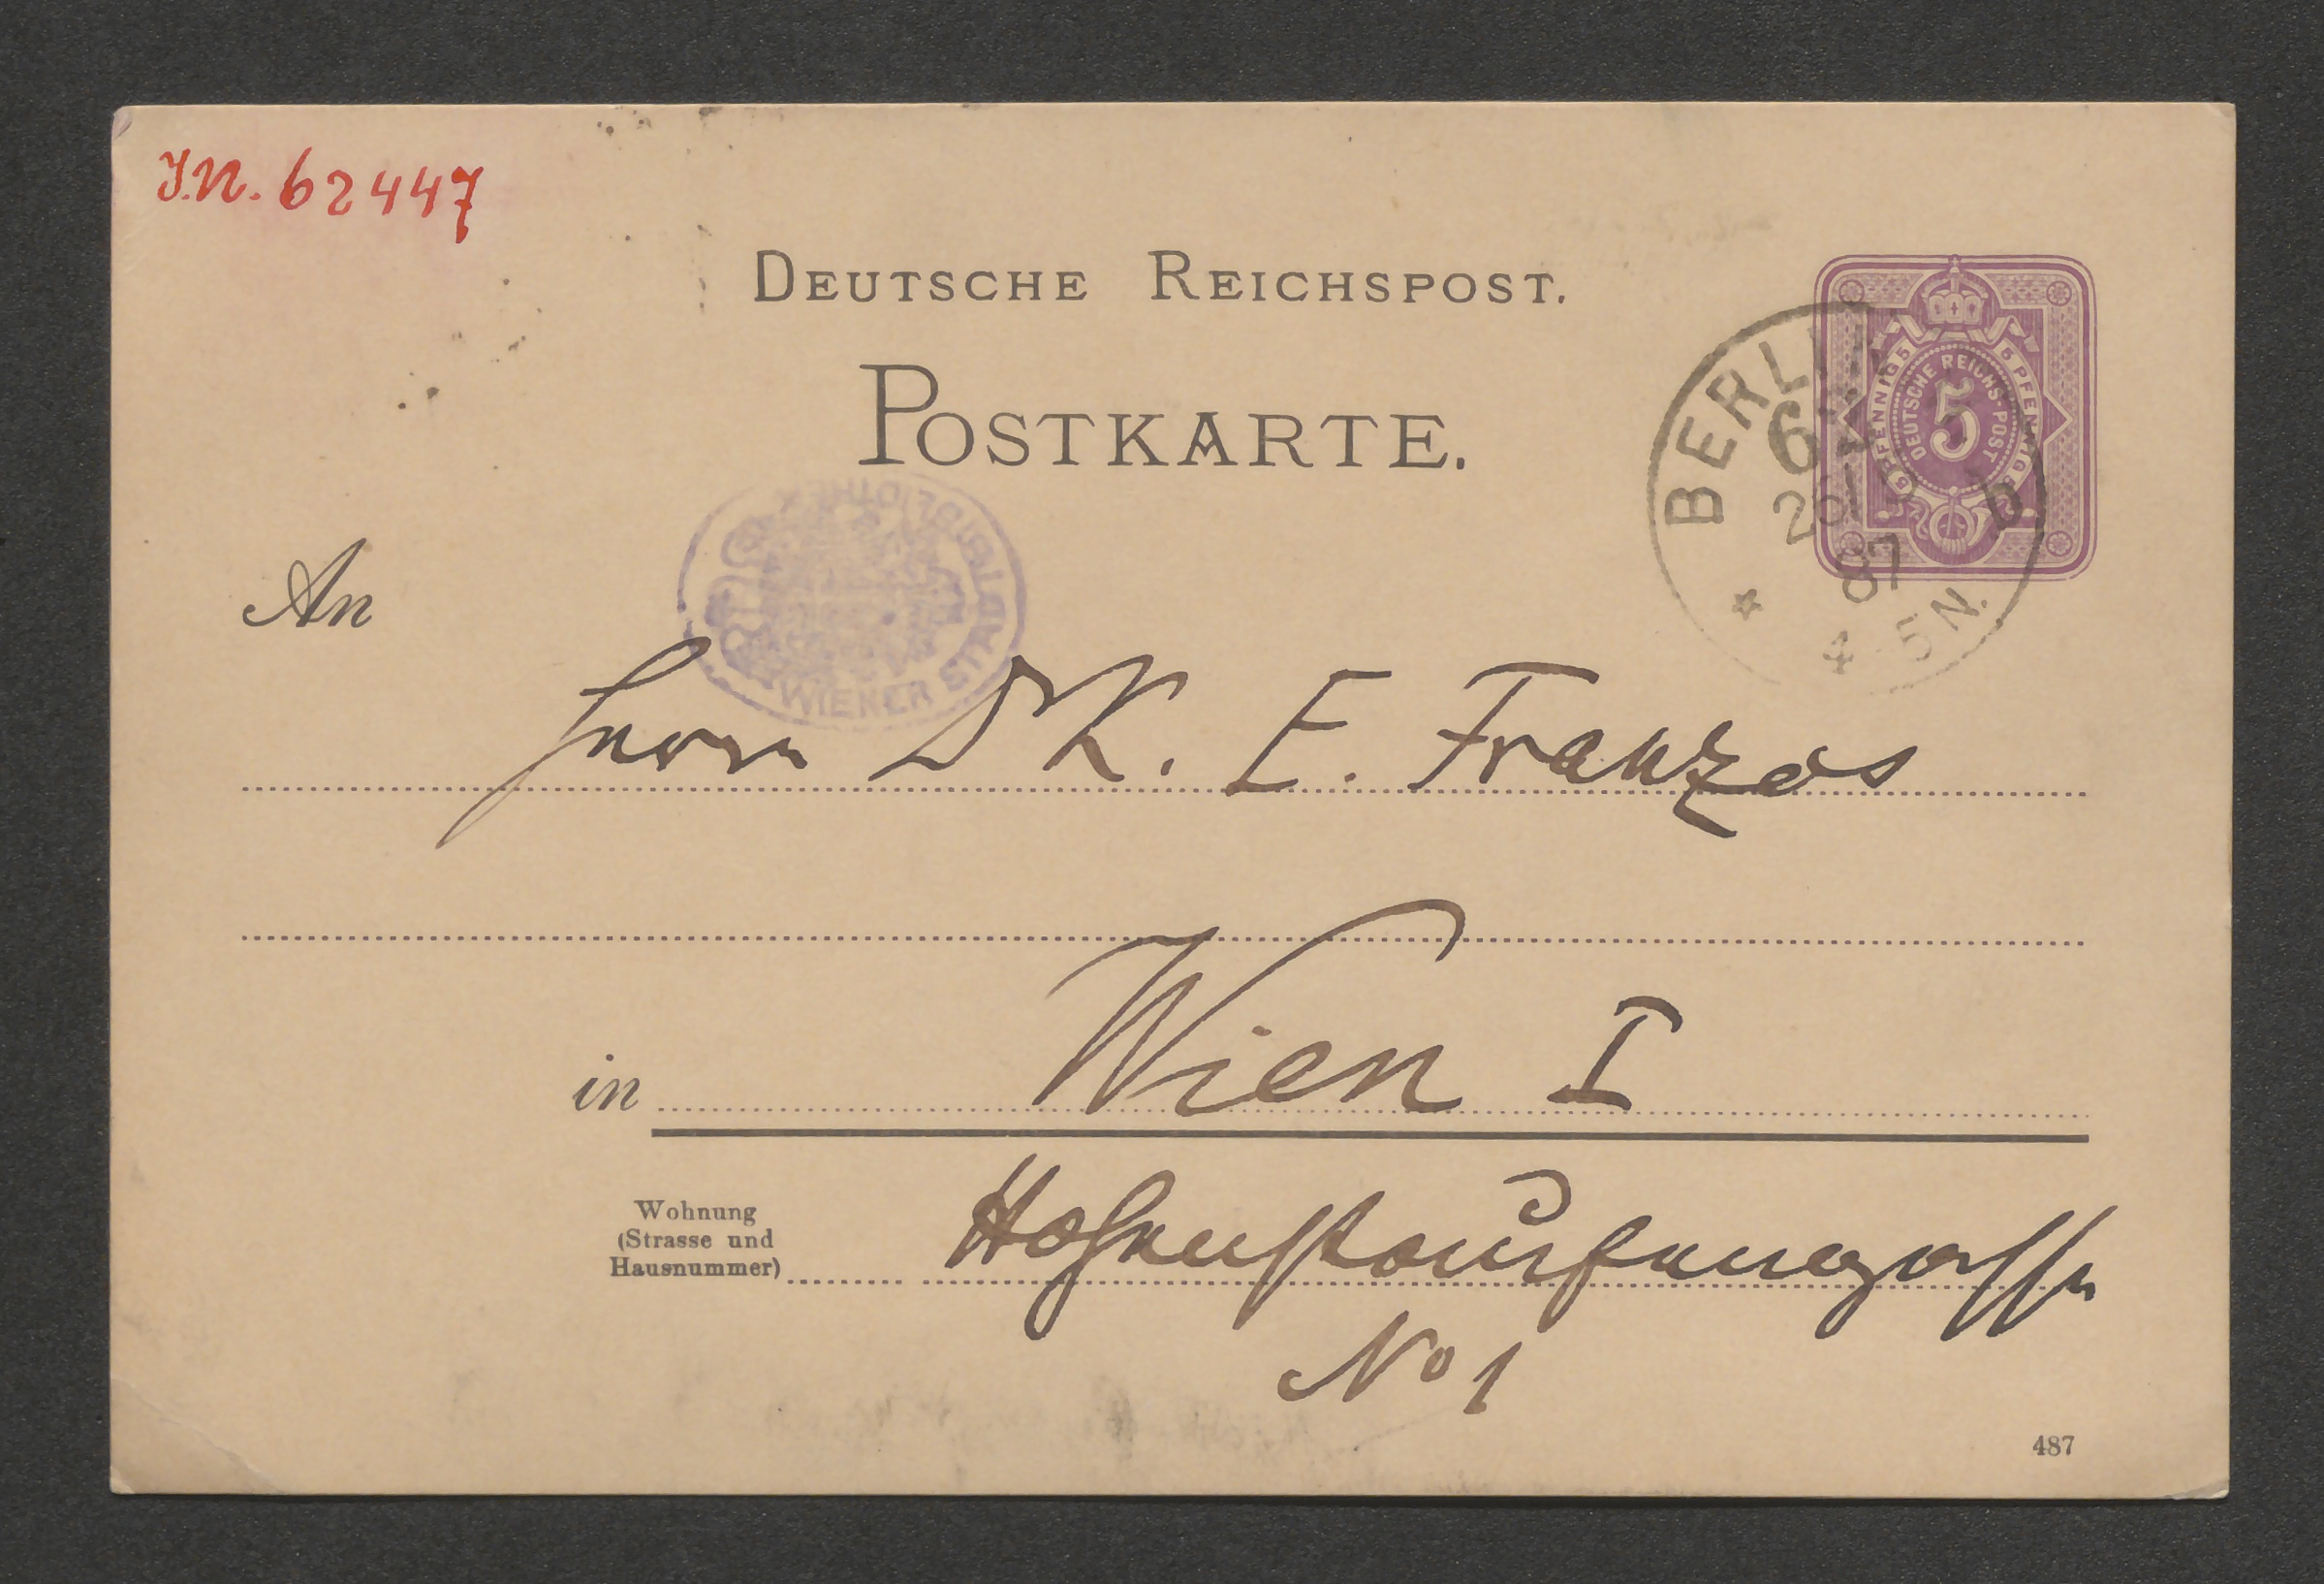 J.N. 62447
DEUTSCHE REICHSPOST.
POSTKARTE.
5 PFENNIG 5 5 PFENNIG 5
DEUTSCHE REICHS-POST
5
BERLIN
87
4-5N.
WIENER STADTBIBLIOTHEK
An
Herrn Dr K. E. Franzos
in Wien I
Wohnung
(Strasse und
Hausnummer)
Hohenstaufengasse
No 1
487